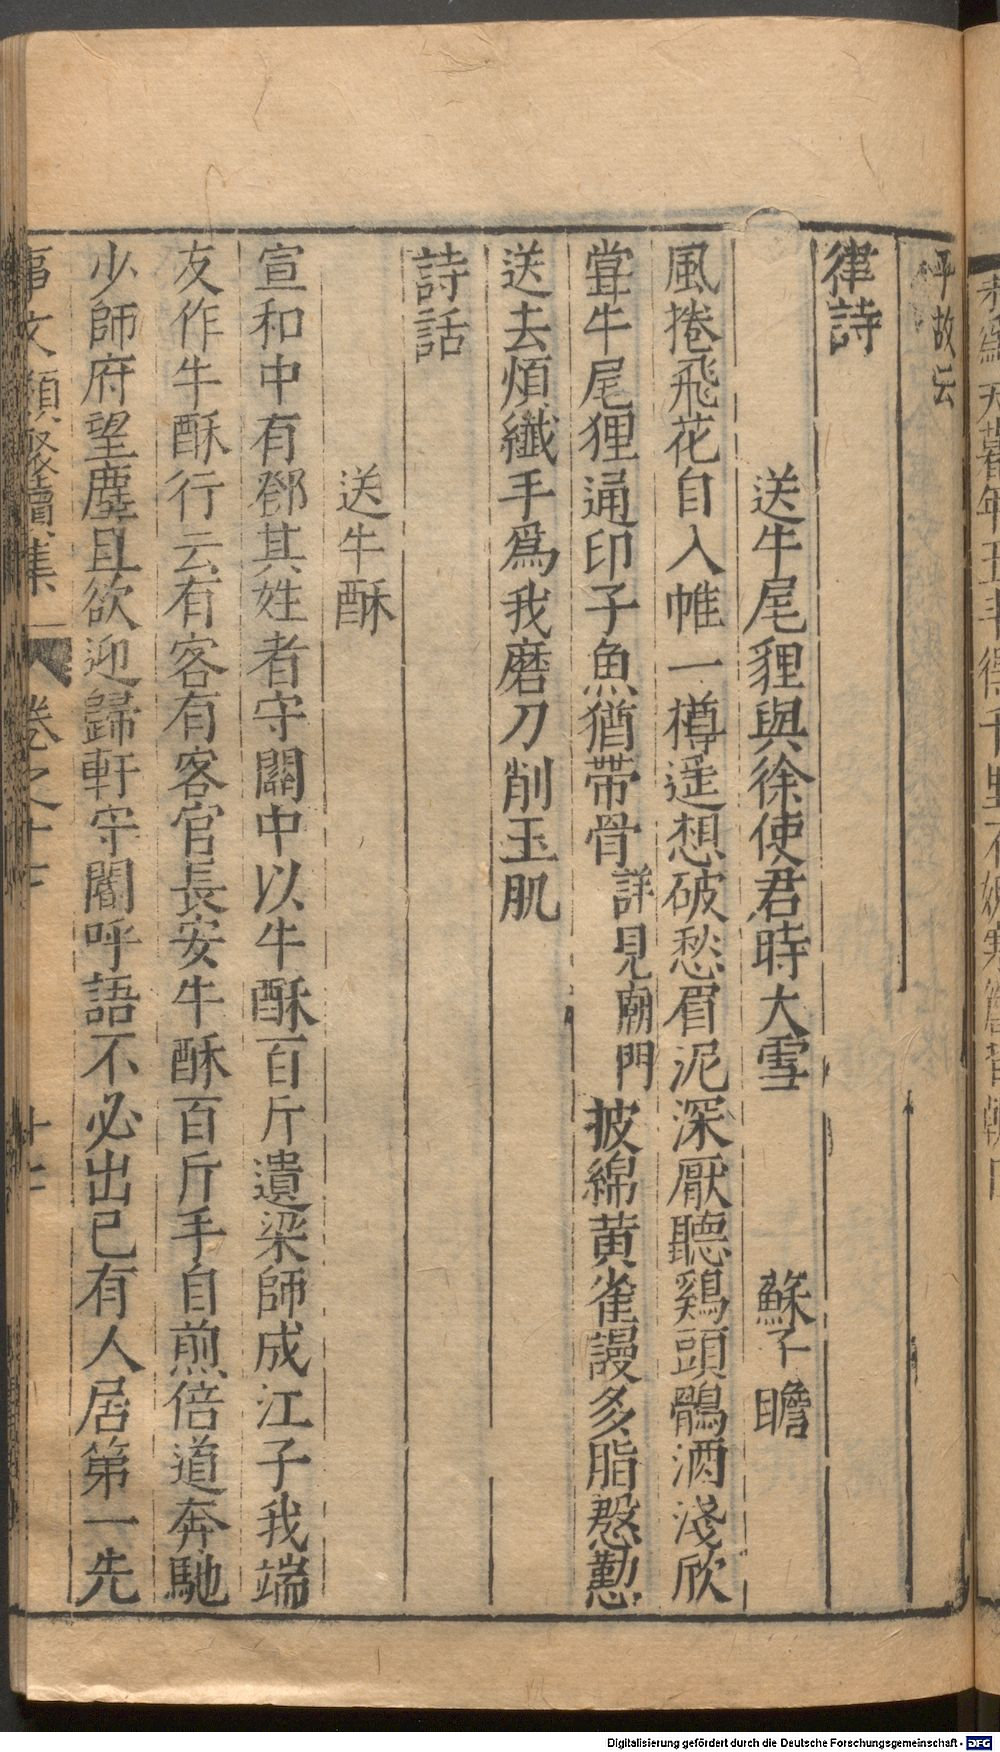 平故云
律詩
送牛尾貍與徐使君時大雪 蘇子瞻
風捲飛花自入帷一樽遥想破愁眉泥深厭聽鷄頭鶻酒淺欣
甞牛尾狸通印子魚猶帶骨詳見廟門披綿黄雀謾多脂慇懃
送去煩纖手爲我磨刀削玉肌
詩話
送牛酥
宣和中有鄧其姓者守關中以牛酥百斤遺梁師成江子我端
友作牛酥行云有客有客官長安牛酥百斤手自煎倍道奔馳
少師府望塵且欲迎歸軒守閽呼語不必出已有人居第一先
事文類聚續集 卷之十七 十七
Digitalisierung gefördert durch die Deutsche Forschungsgemeinschaft - DFG